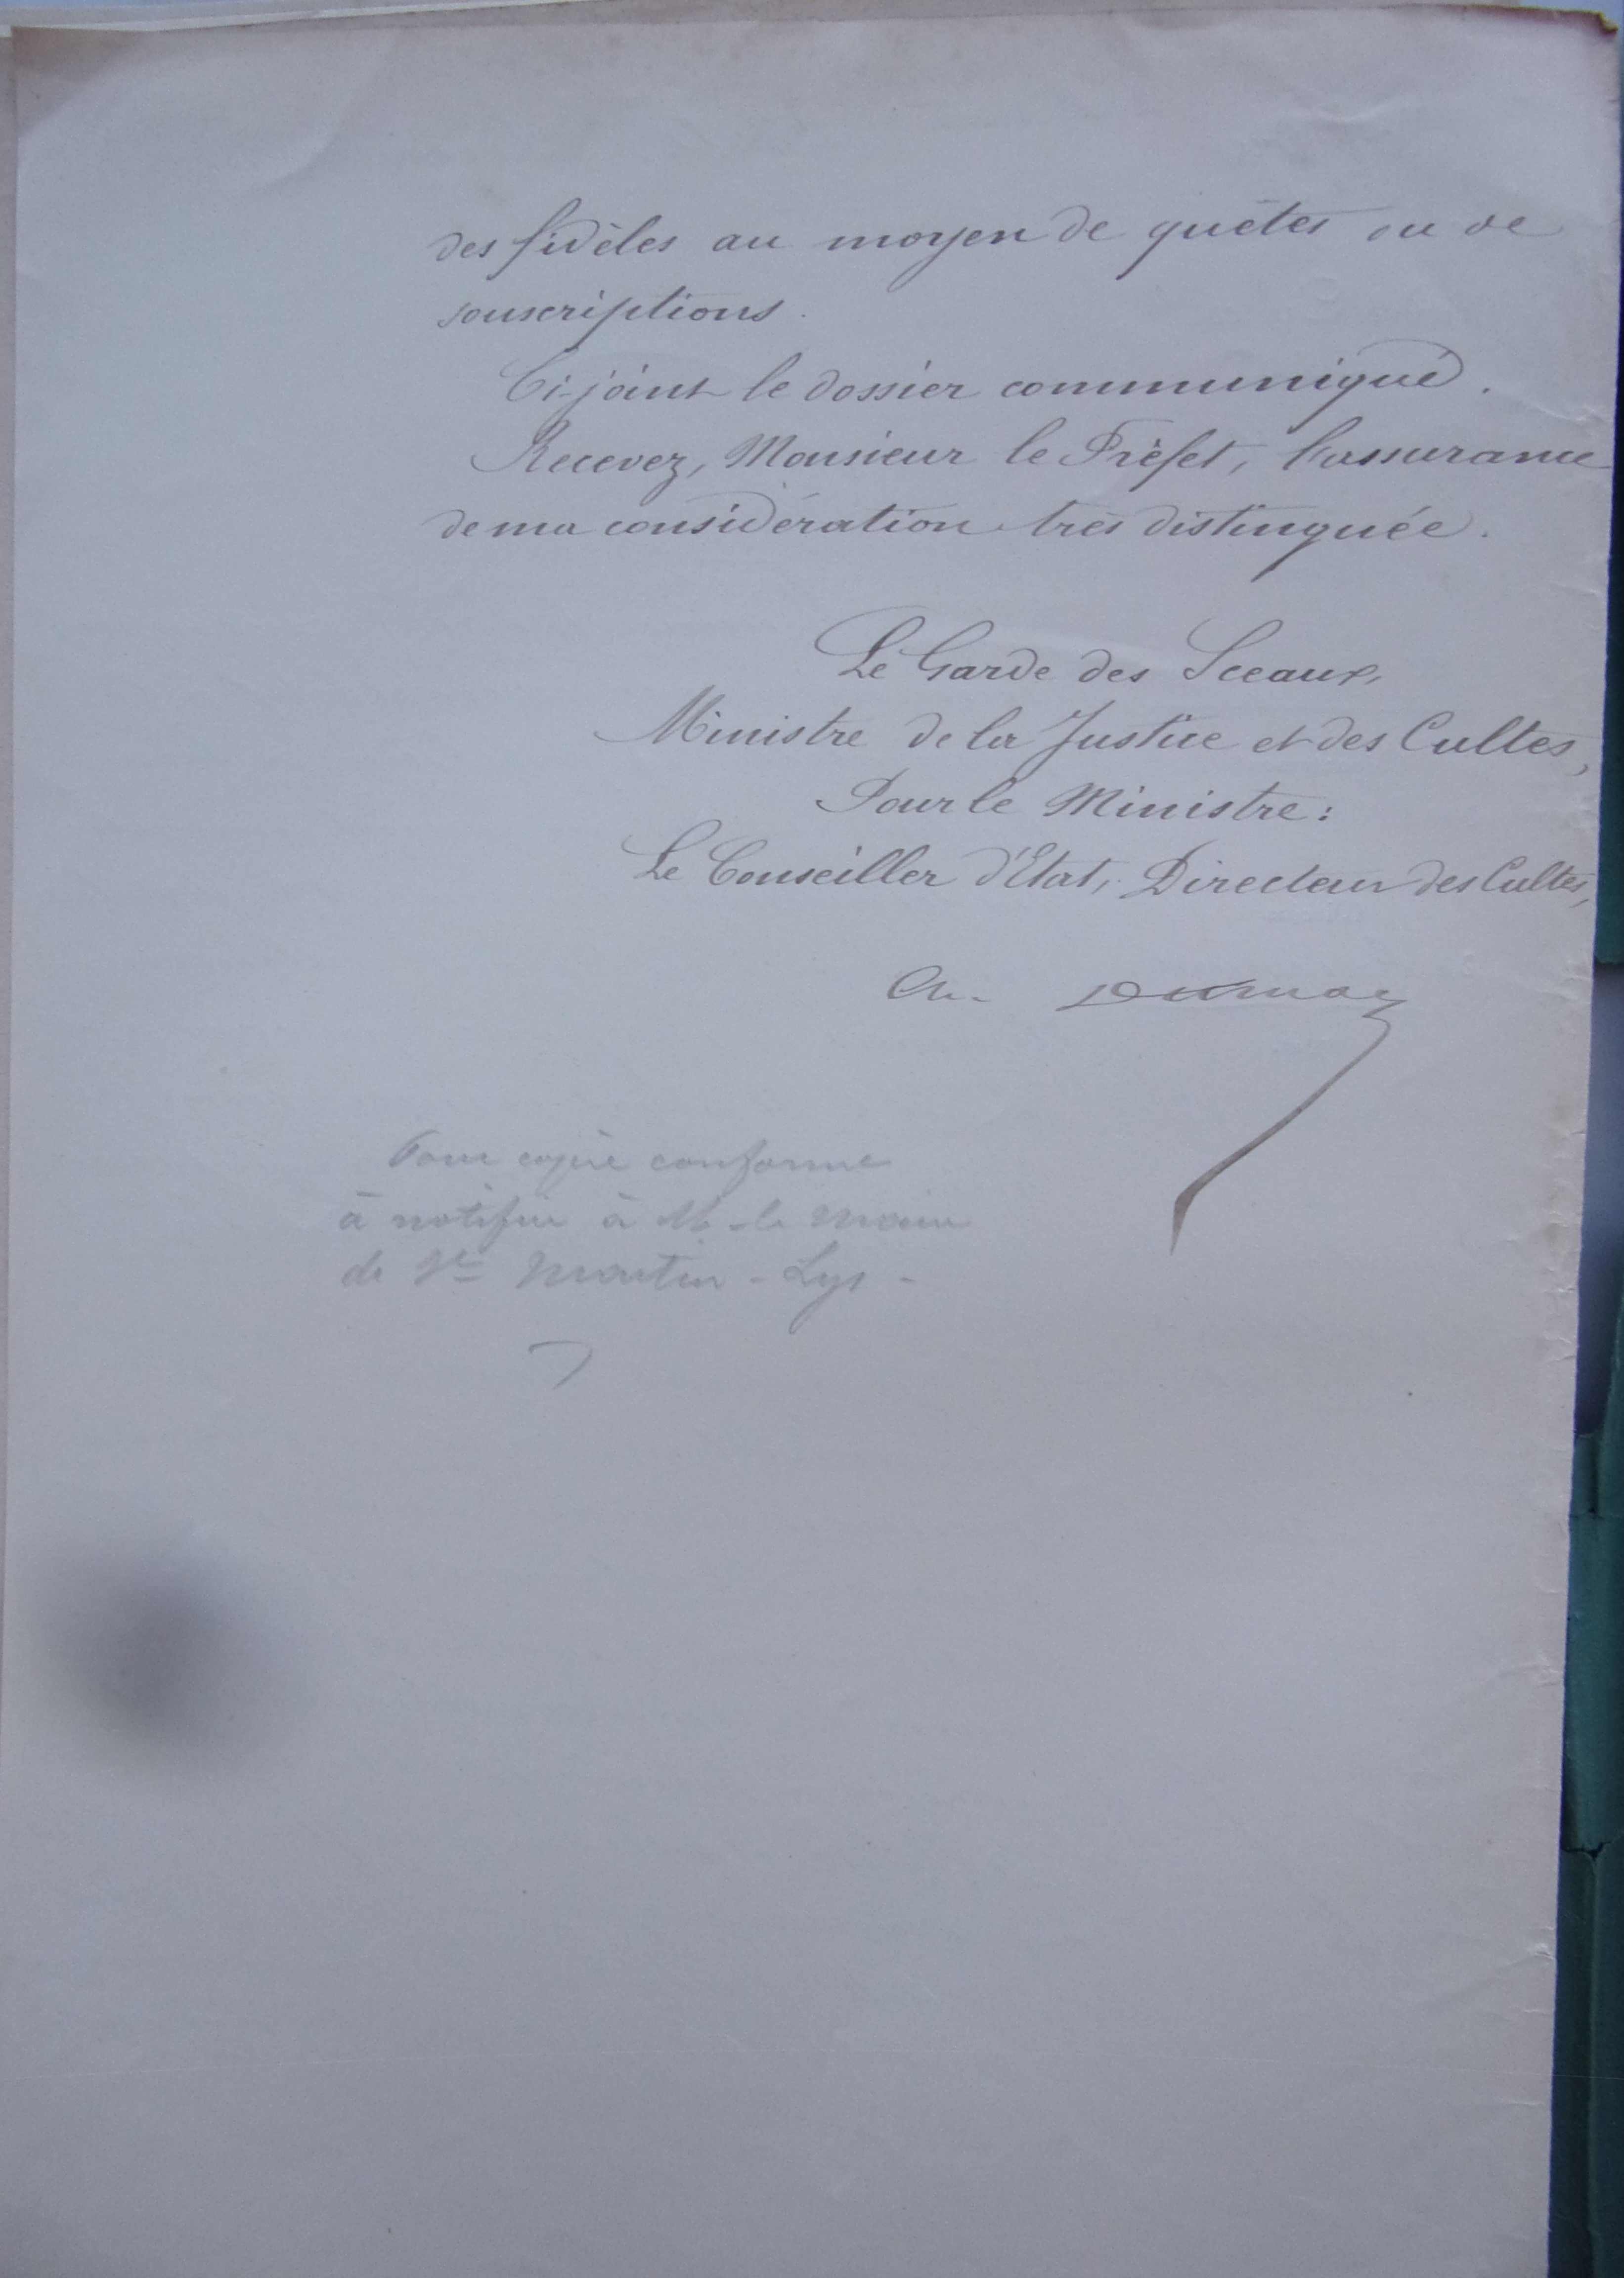 des fidèles au moyen de quêtes ou de
souscriptions.
Ci-joint le dossier communiqué.
Recevez, Monsieur le Préfet, l'assurance
de ma considération très distinguée.
Le Garde des Sceaux,
Ministre de la Justice et des Cultes,
Pour le Ministre:
Le Conseiller d'Etat, Directeur des Cultes,
Ch. Dumay
Pour copie conforme
à notifier à M. le Maire
de St Martin-Lys-